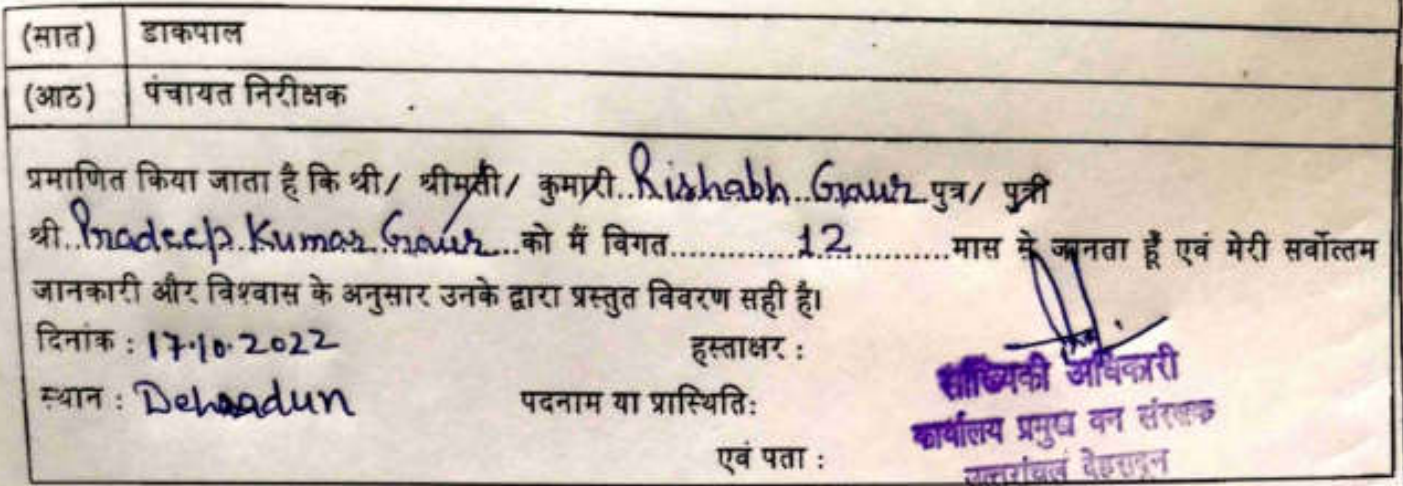 (सात) डाकपाल
(आठ) पंचायत निरीक्षक
प्रमाणित किया जाता है कि श्री/ श्रीमती/ कुमारी..Rishabh..Gaur पुत्र/ पुत्री
श्री..Pradeep Kumar Gaur...को मैं विगत..................12..............मास से जानता हूँ एवं मेरी सर्वोत्तम
जानकारी और विश्वास के अनुसार उनके द्वारा प्रस्तुत विवरण सही है।
दिनांक : 17.10.2022 हस्ताक्षर :
स्थान : Dehradun पदनाम या प्रास्थिति:
एवं पता :
सांख्यिकी अधिकारी
कार्यालय प्रमुख वन संरक्षक
उत्तरांचल देहरादून